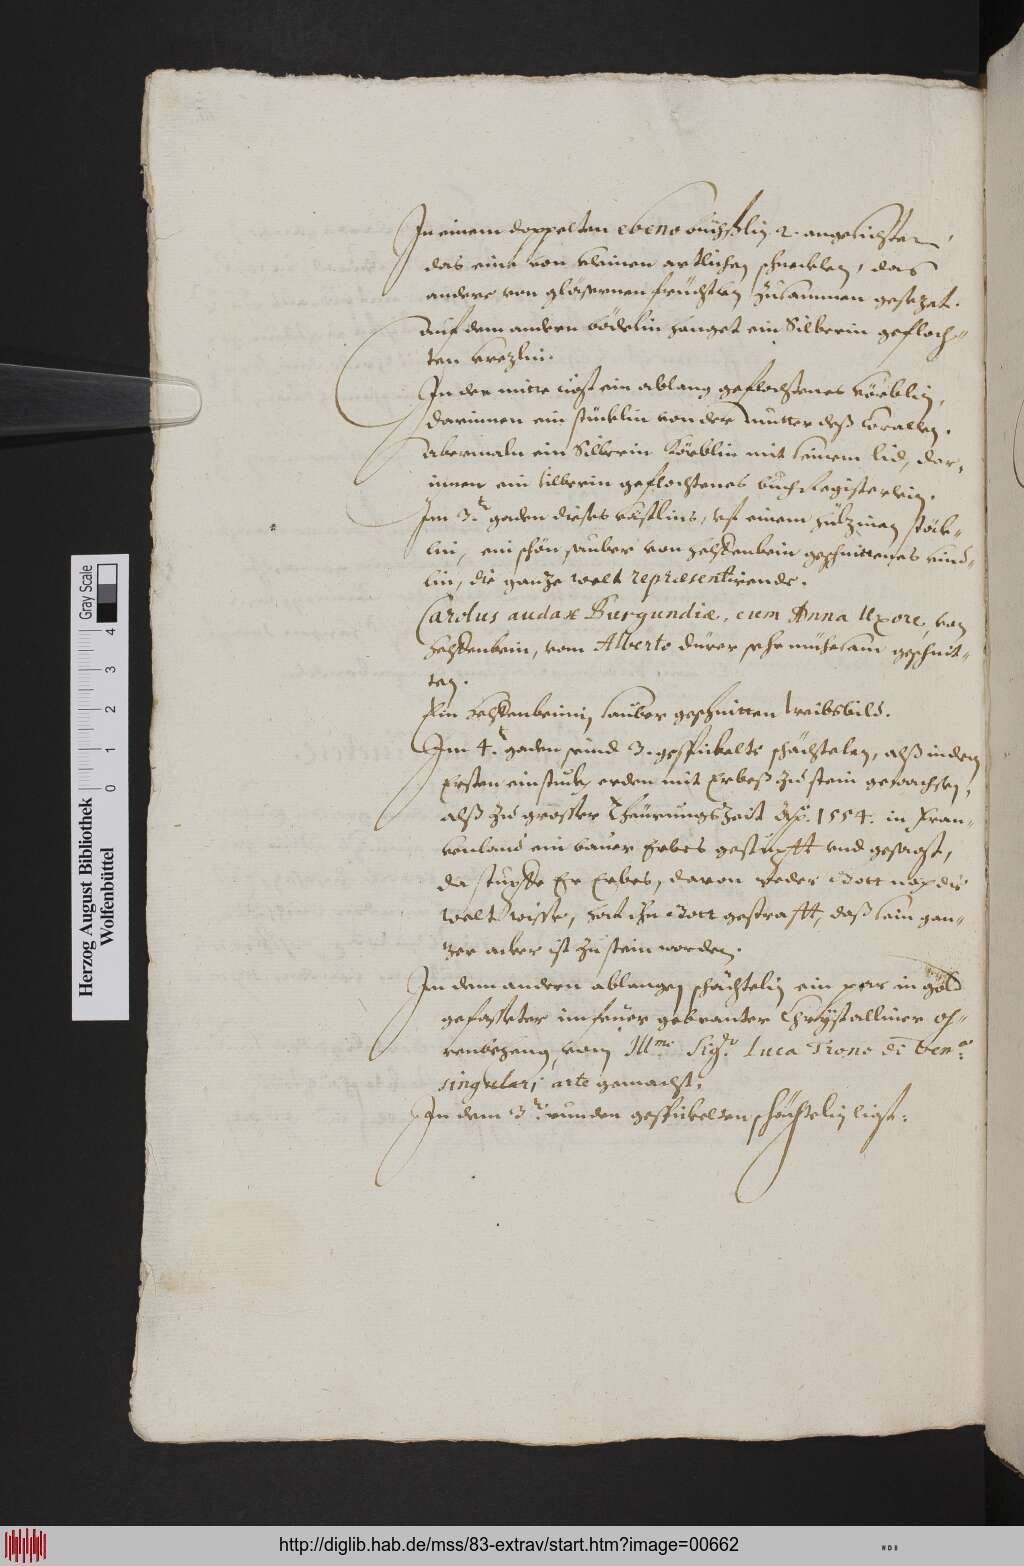 In einem doppelten ebeno büchßlin 2. angesichter,
das eine von kleinen artlichen schnecklen, das
andere von gläsernen früchtlen zusammen gesezt.
Auf dem andern bödelin hanget ein Silberin gefloch-
ten krezlin.
In der mitte ligt ein ablang geflochtenes körblin,
darinnen ein stücklin von der mutter deß Corallen.
Abermaln ein Silberin körblin mit seinem lid, dar-
innen ein silberin geflochtenes buch Registerlein.
Im 3.t gaden dieses kästlins, uf einem hülzinen stöck-
lin, ein schön sauber von helffenbein geschnittenes kind-
lin, die ganze welt repræsentirende.
Carolus audax Burgundiæ, cum Anna Uxore, von
helffenbein, vom Alberto dürer sehr mühesam geschnit-
ten.
Ein helffenbeinin sauber geschnitten weibsbild.
Im 4.t gaden seind 3. gespickelte schächtelen, alß in dem
Ersten ein stuck erden mit Erbeß zu stein gewachsen,
alß zu grosser Theurungszeit Aō. 1554. in Fran-
kenland ein baur Erbes gestupfft und gesagt,
da stupffe Er Erbes, davon weder Gott noch die
welt wisse, hat ihn Gott gestrafft, daß sein gan-
zer acker ist zu stein worden.
In dem andern ablangen schächtelin ein par in gold
gefasster im feuer gebranter Chrystalliner oh-
rengeheng, vom Ill.mo Sig.r Luca Trono di Ven.a
singulari arte gemacht.
In dem 3.t runden gespickelten schächtelin ligt:
Herzog August Bibliothek
Wolfenbüttel
0 1 2 3 4
Gray Scale
http://diglib.hab.de/mss/83-extrav/start.htm?image=00662